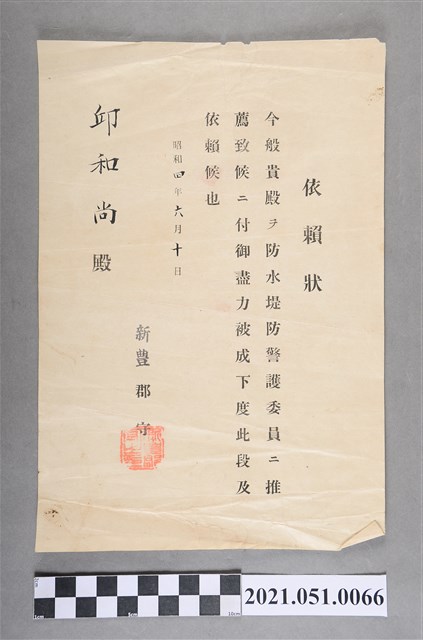 依賴狀
今般貴殿ヲ防水堤防警護委員ニ推
薦致候ニ付御盡力被成下度此段及
依賴候也
昭和四年六月十日
新豐郡守
邱和尚殿
1cm 5cm 10cm
2021.051.0066